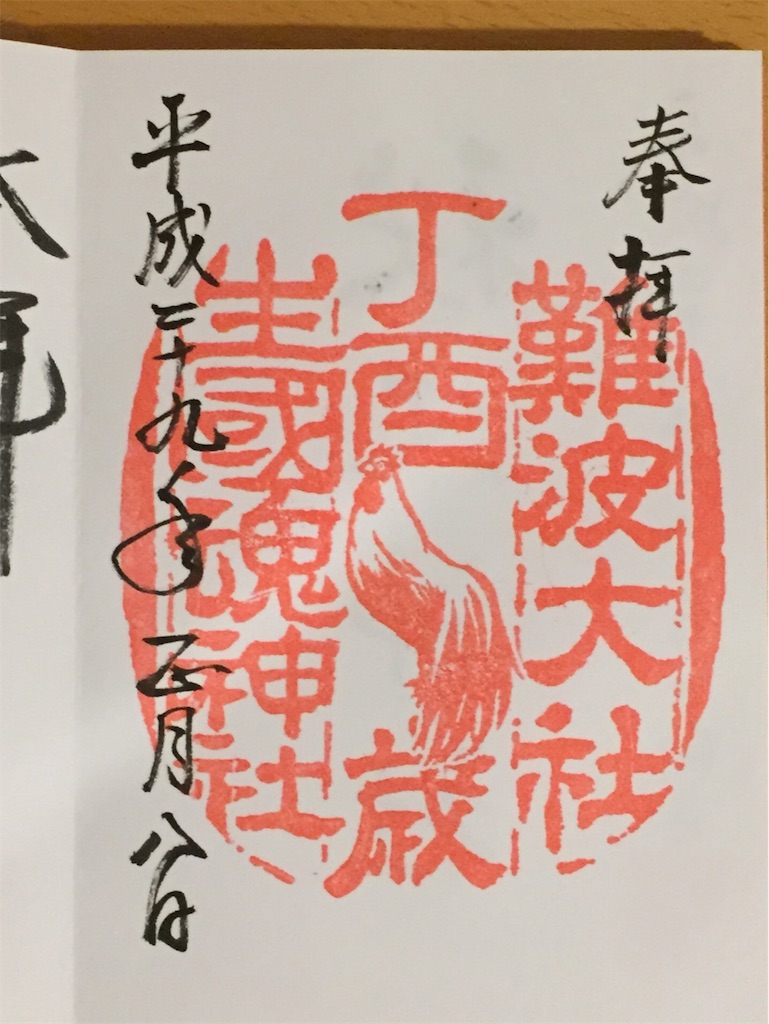 奉拝
難波大社
丁酉歳
生國魂神社
平成二十九年正月八日